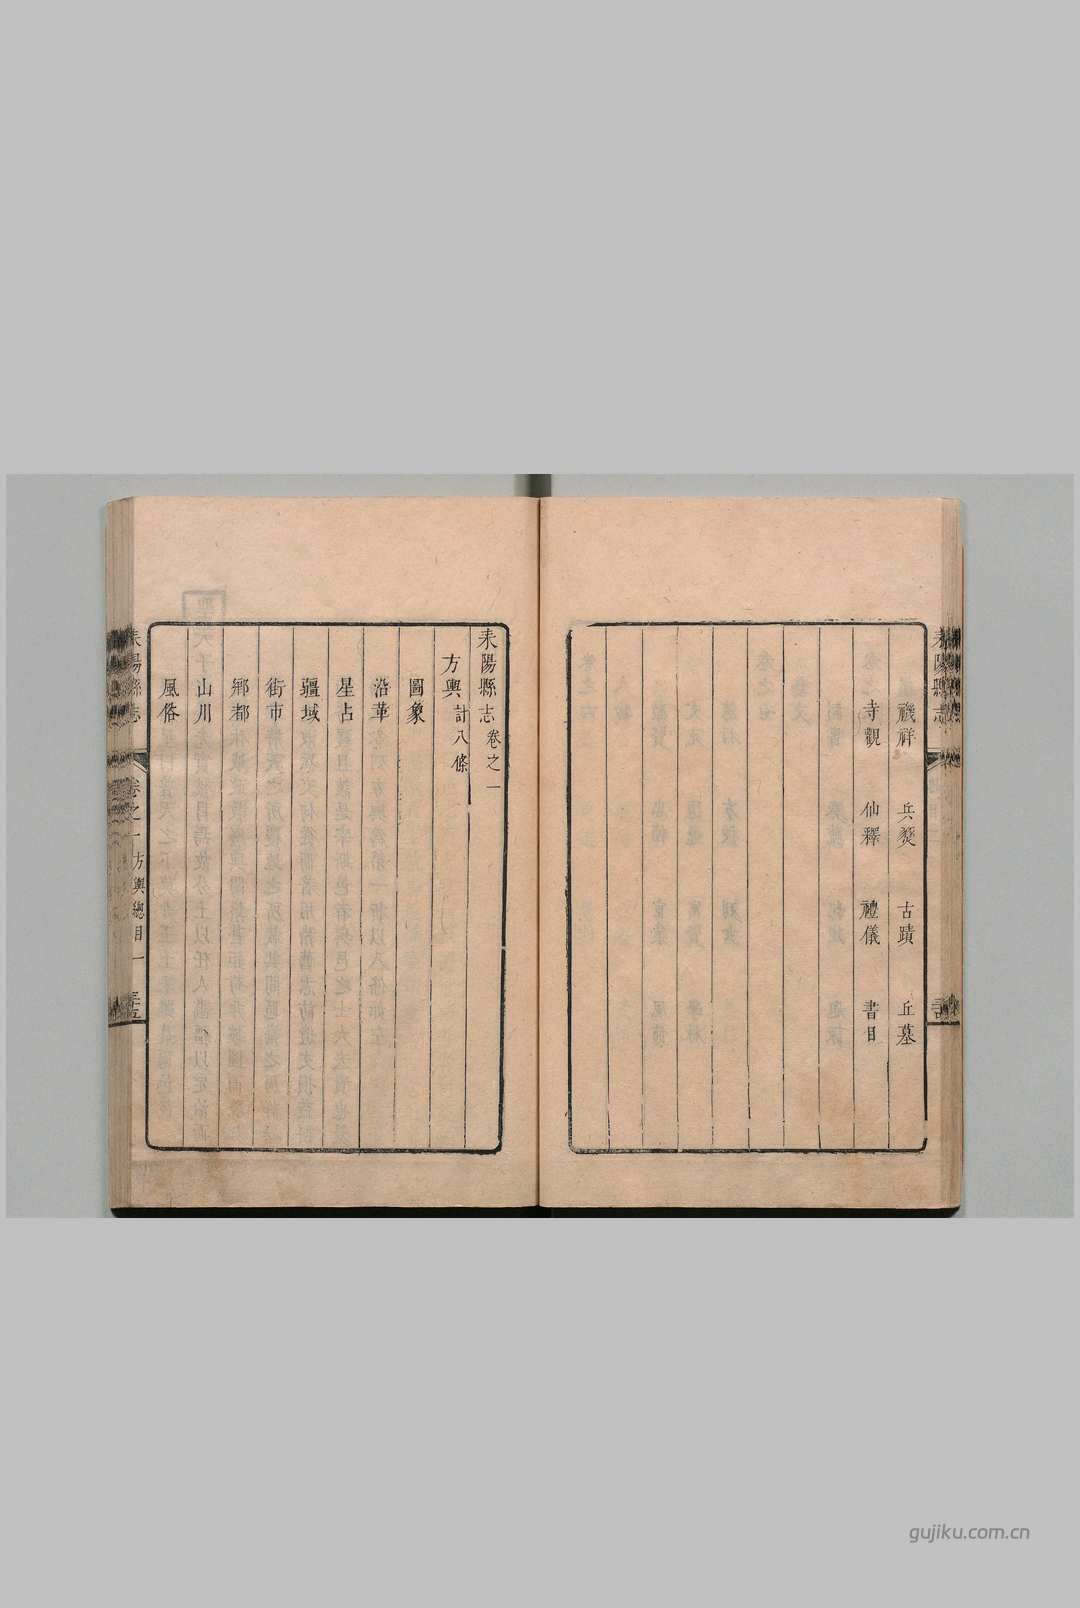 耒陽縣志
禨祥 兵燹 古蹟 丘墓
寺觀 仙釋 禮儀 書目
耒陽縣志卷之一
方輿計八條
圖象
沿革
星占
疆域
街市
鄉都
山川
風俗
耒陽縣志 卷之一 方輿總目 一
gujiku.com.cn